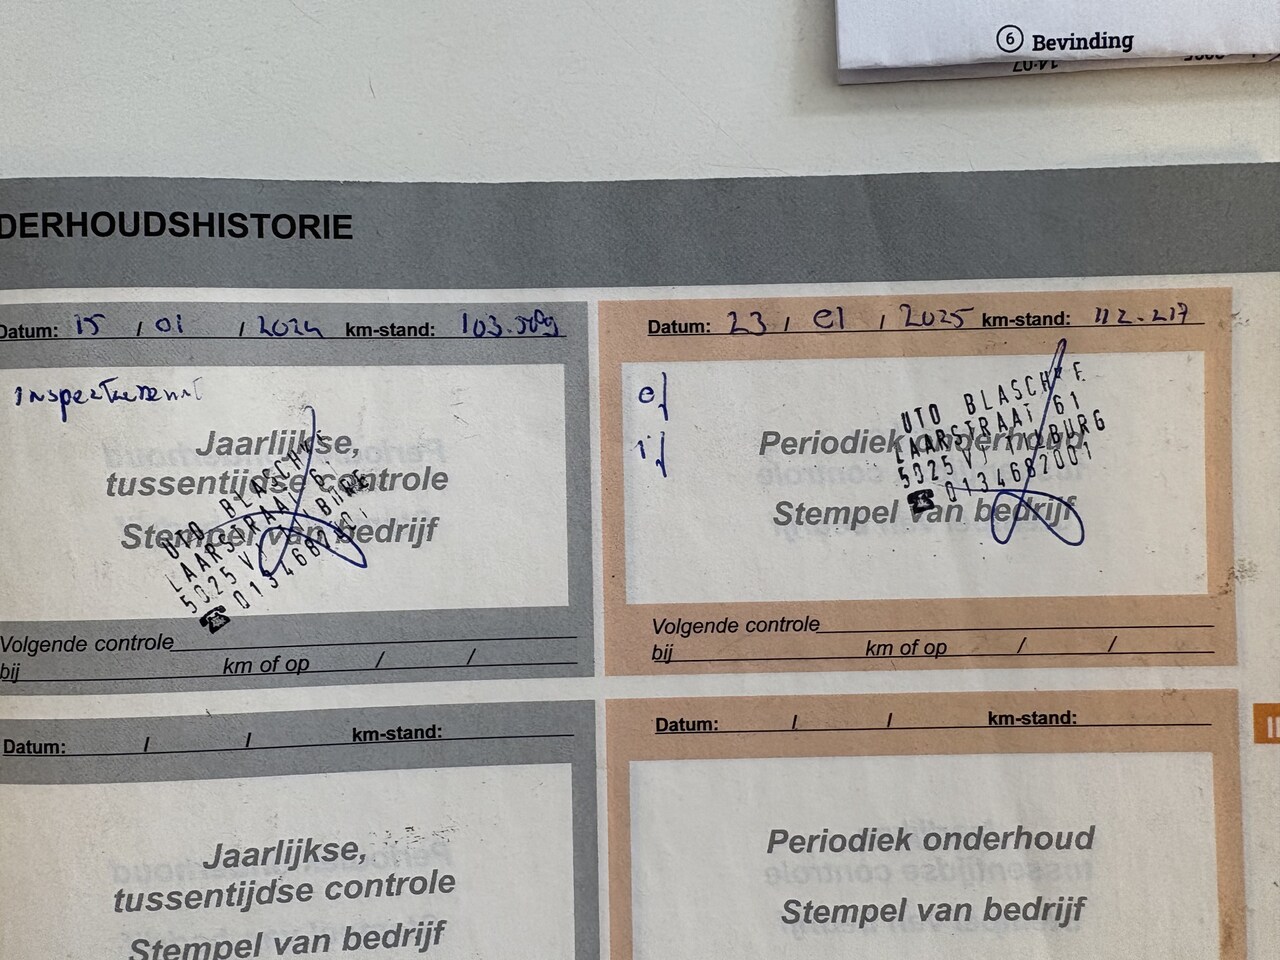 6 Bevinding
DERHOUDSHISTORIE
Datum: 15 / 01 / 2024 km-stand:
Jaarlijkse,
tussentijdse controle
Stempel van bedrijf
UTO BLASCH
LAARSTRAAT 6
5025 V
Volgende controle
bij km of op / /
Datum: 23 / 01 / 2025 km-stand: 112.217
Periodiek onderhoud
Stempel van bedrijf
UTO BLASCH F.
LAARSTRAAT 61
5025 V TILBURG
0134682001
Volgende controle
bij km of op / /
Datum: / / km-stand:
Jaarlijkse,
tussentijdse controle
Stempel van bedrijf
Datum: / / km-stand:
Periodiek onderhoud
Stempel van bedrijf